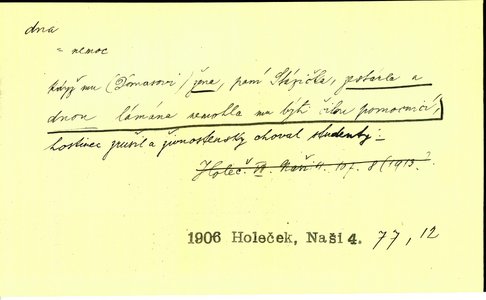 dna
= nemoc
když mu (Tomasovi) žena, paní Štěpička, zestárla a
dnou lámána nemohla mu býti čilou pomocnicí,
hostinec zrušil a živnostensky choval studenty.
Holeč. Naši 4. 137. 8 (1913
1906 Holeček, Naši 4. 77, 12